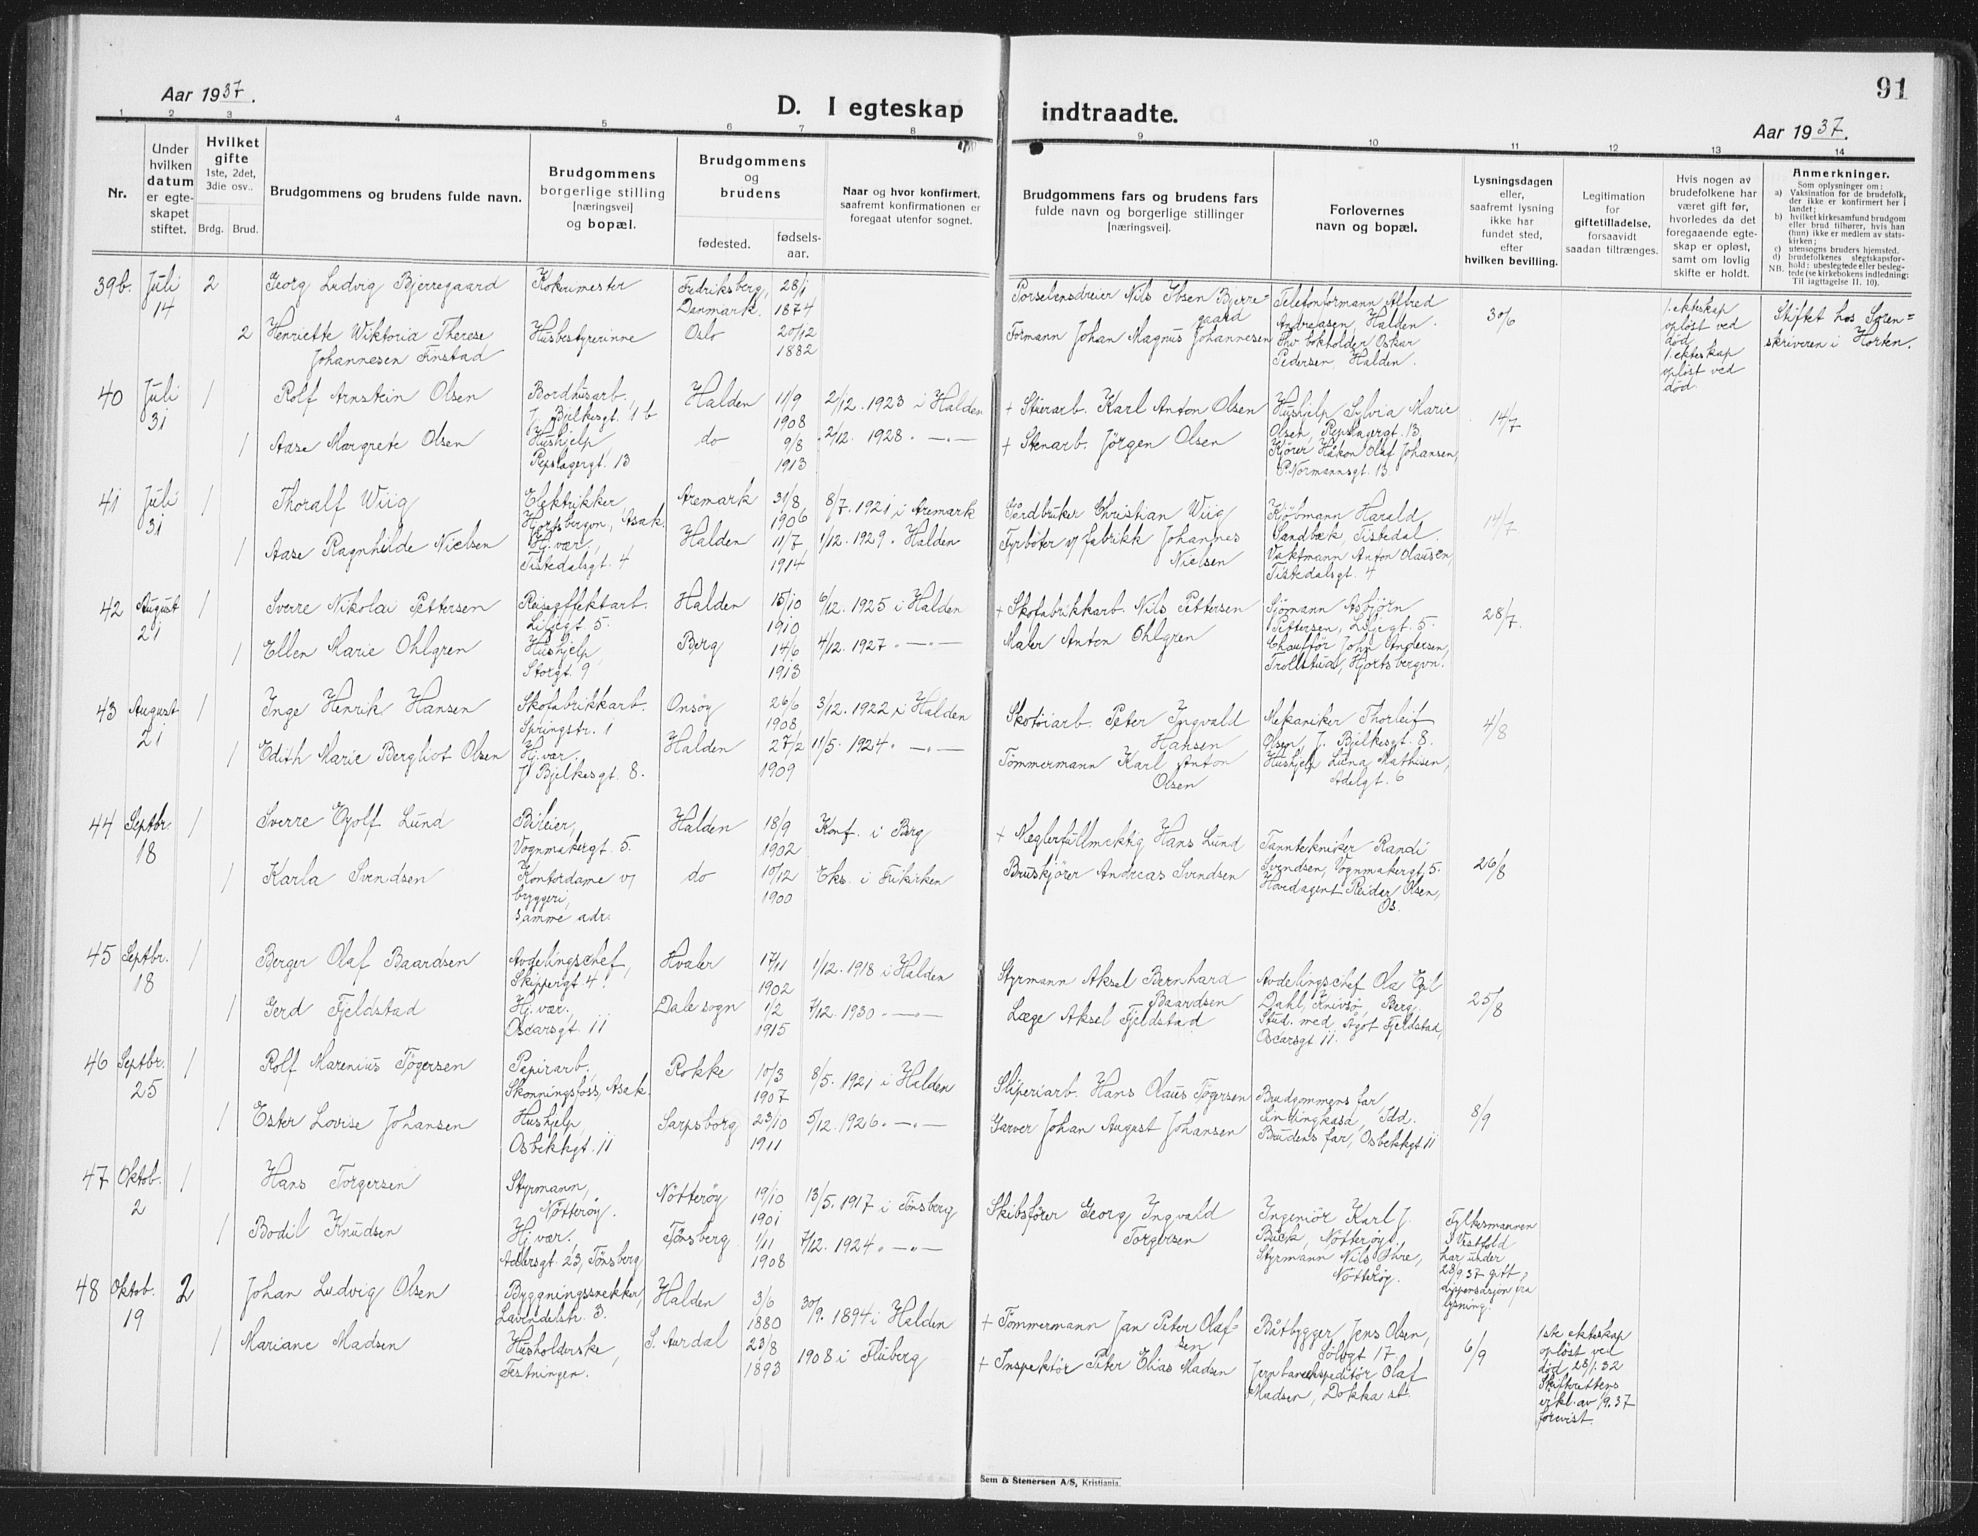 Aar 1937.
D. I egteskap
indtraadte.
91
Aar 1937.
1 2 3 4 5 6 7 8 9 10 11 12 13 14
Nr.
Under hvilken datum er egteskapet stiftet.
Hvilket gifte 1ste, 2det, 3die osv..
Brdg. Brud.
Brudgommens og brudens fulde navn.
Brudgommens borgerlige stilling [næringsvei] og bopæl.
Brudgommens og brudens
fødested.
fødselsaar.
Naar og hvor konfirmert, saafremt konfirmationen er foregaat utenfor sognet.
Brudgommens fars og brudens fars fulde navn og borgerlige stillinger [næringsvei].
Forlovernes navn og bopæl.
Lysningsdagen eller, saafremt lysning ikke har fundet sted, efter hvilken bevilling.
Legitimation for giftetilladelse, forsaavidt saadan tiltrænges.
Hvis nogen av brudefolkene har været gift før, hvorledes da det foregaaende egteskap er opløst, samt om lovlig skifte er holdt.
Anmerkninger.
Som oplysninger om:
a) Vaksination for de brudefolk, der ikke er konfirmert her i landet;
b) hvilket kirkesamfund brudgom eller brud tilhører, hvis han (hun) ikke er medlem av statskirken;
c) utensogns bruders hjemsted.
d) brudefolkenes slegtskapsforhold: ubeslegtede eller beslegtede (se kirkebokens indledning: Til iagttagelse II. 10).
NB.
39b. Juli 14 2 Georg Ludvig Bjerregaard Kokrimester Fredriksberg, Danmark. 28/1 1874 Porselensdreier Nils Ibsen Bjerregaard Telefonformann Alfred Andreasen, Halden. 30/6 1. ekteskap opløst ved død. Stiftet hos Sorenskriveren i Horten.
2 Henriette Wiktoria Therese Johannesen Finstad Husbestyrerinne Oslo 20/12 1882 Formann Johan Magnus Johannesen Fhv bokholder Oskar Pedersen, Halden. 1. ekteskap opløst ved død.
40 Juli 31 1 Rolf Arnstein Olsen Bordhusarb. J. Bjelkesgt. 1 b Halden 11/9 1908 2/12. 1923 i Halden + Stuerarb. Karl Anton Olsen Hushjelp Sylvia Marie Olsen, Repslagergt. 13 14/7
1 Aase Margrete Olsen Hushjelp Repslagergt. 13 do 9/8 1913 2/12. 1928. —"— + Stenarb. Jörgen Olsen Kjører Håkon Olaf Johansen, P. Normannsgt. 13
41 Juli 31 1 Thoralf Wiig Elektrikker Hjortsbergvn, Asak. Aremark 31/8 1906 8/7. 1921 i Aremark Gårdbruker Christian Wiig Kjøbmann Harald Sandbæk, Tistedal. 14/7
1 Aase Ragnhilde Nielsen Hj.vær., Tistedalsgt. 4 Halden 11/7 1914 1/12. 1929. Halden Fyrbøter v/ fabrikk Johannes Nielsen Vaktmann Anton Olausen, Tistedalsgt. 4
42 August 21 1 Sverre Nikolai Pettersen Reiseeffektarb. Liljegt. 5. Halden 15/10 1910 6/12. 1925 i Halden + Skofabrikkarb. Nils Pettersen Sjömann Asbjörn Pettersen, Liljegt. 5. 28/7.
1 Ellen Marie Ohlgren Hushjelp Storgt. 9 Berg 14/6 1913 4/12. 1927. —"— Maler Anton Ohlgren Chaufför John Andersen, Trollstua, Hjortsbergvn.
43 August 21 1 Inge Henrik Hansen Skofabrikkarb. Springstr. 1 Onsöy 26/6 1908 3/12. 1922 i Halden Skotöiarb. Peter Ingvald Hansen Mekaniker Thorleif Olsen, J. Bjelkesgt. 8. 4/8
1 Edith Marie Bergliot Olsen Hj.vær. J. Bjelkesgt. 8. Halden 27/2 1909 11/5. 1924. —"— Tömmermann Karl Anton Olsen Hushjelp Luna Mathisen, Adelgt. 6
44 Septbr. 18 1 Sverre Egolf Lund Bileier, Vognmakergt. 5. Halden 18/9 1902 Konf. i Berg + Meglerfullmektig Hans Lund Tanntekniker Randi Svendsen, Vognmakergt. 5. 26/8
1 Karla Svendsen Kontordame v/ bryggeri, samme adr. do 10/12 1900 Eks. i Frikirken Bruskjører Andreas Svendsen Hovedagent Reidar Olsen, Os.
45 Septbr. 18 1 Berger Olaf Baardsen Avdelingschef, Skippergt. 4. Hvaler 17/11 1902 1/12. 1918 i Halden Styrmann Aksel Bernhard Baardsen Avdelingschef Ola Egil Dahl, Knivsö, Berg. 25/8
1 Gerd Fjeldstad Hj.vær. Oscarsgt. 11 Dale sogn 1/2 1915 7/12. 1930. —"— Læge Aksel Fjeldstad Stud. med. Agot Fjeldstad, Oscarsgt 11.
46 Septbr. 25 1 Rolf Marenius Tögersen Papirarb. Skonningsfoss, Asak. Rokke 10/3 1907 8/5. 1921 i Halden Sliperiarb. Hans Olaus Tögersen Brudgommens far, Idd. 8/9
1 Ester Lovise Johansen Hushjelp Osbekkgt. 11 Sarpsborg 23/10 1911 5/12. 1926. —"— Garver Johan August Johansen Brudens far, Osbekkgt 11
47 Oktob. 2 1 Hans Torgersen Styrmann, Nötteröy. Nötteröy 19/10 1901 13/5. 1917 i Tønsberg Skibsfører Georg Ingvald Torgersen Ingeniör Karl J. Buck, Nötteröy, Fylkesmannen i Vestfold har under 28/9 37 gitt dispensasjon fra lysning.
1 Bodil Knudsen Hj.vær. Adlersgt. 23, Tønsberg Tønsberg 1/11 1908 7/12. 1924. —"— Styrmann Nils Øvre, Nötteröy.
48 Oktob. 19 2 Johan Ludvig Olsen Byggningssnekker, Lavendelstr. 3. Halden 3/6 1880 30/9. 1894 i Halden + Tömmermann Jan Peter Olafsen Båtbygger Jens Olsen, Sölvgt 17 6/9 1ste ekteskap opløst ved død 28/1. 32 Skifterettens erkl. av 1/9. 37 forevist.
1 Mariane Madsen Husholderske, Festningen. S. Aurdal 23/8 1893 1908 i Fluberg + Inspektör Peter Elias Madsen Jernbaneekspeditör Olaf Madsen, Dokka st.
Sem & Stenersen A/S, Kristiania.